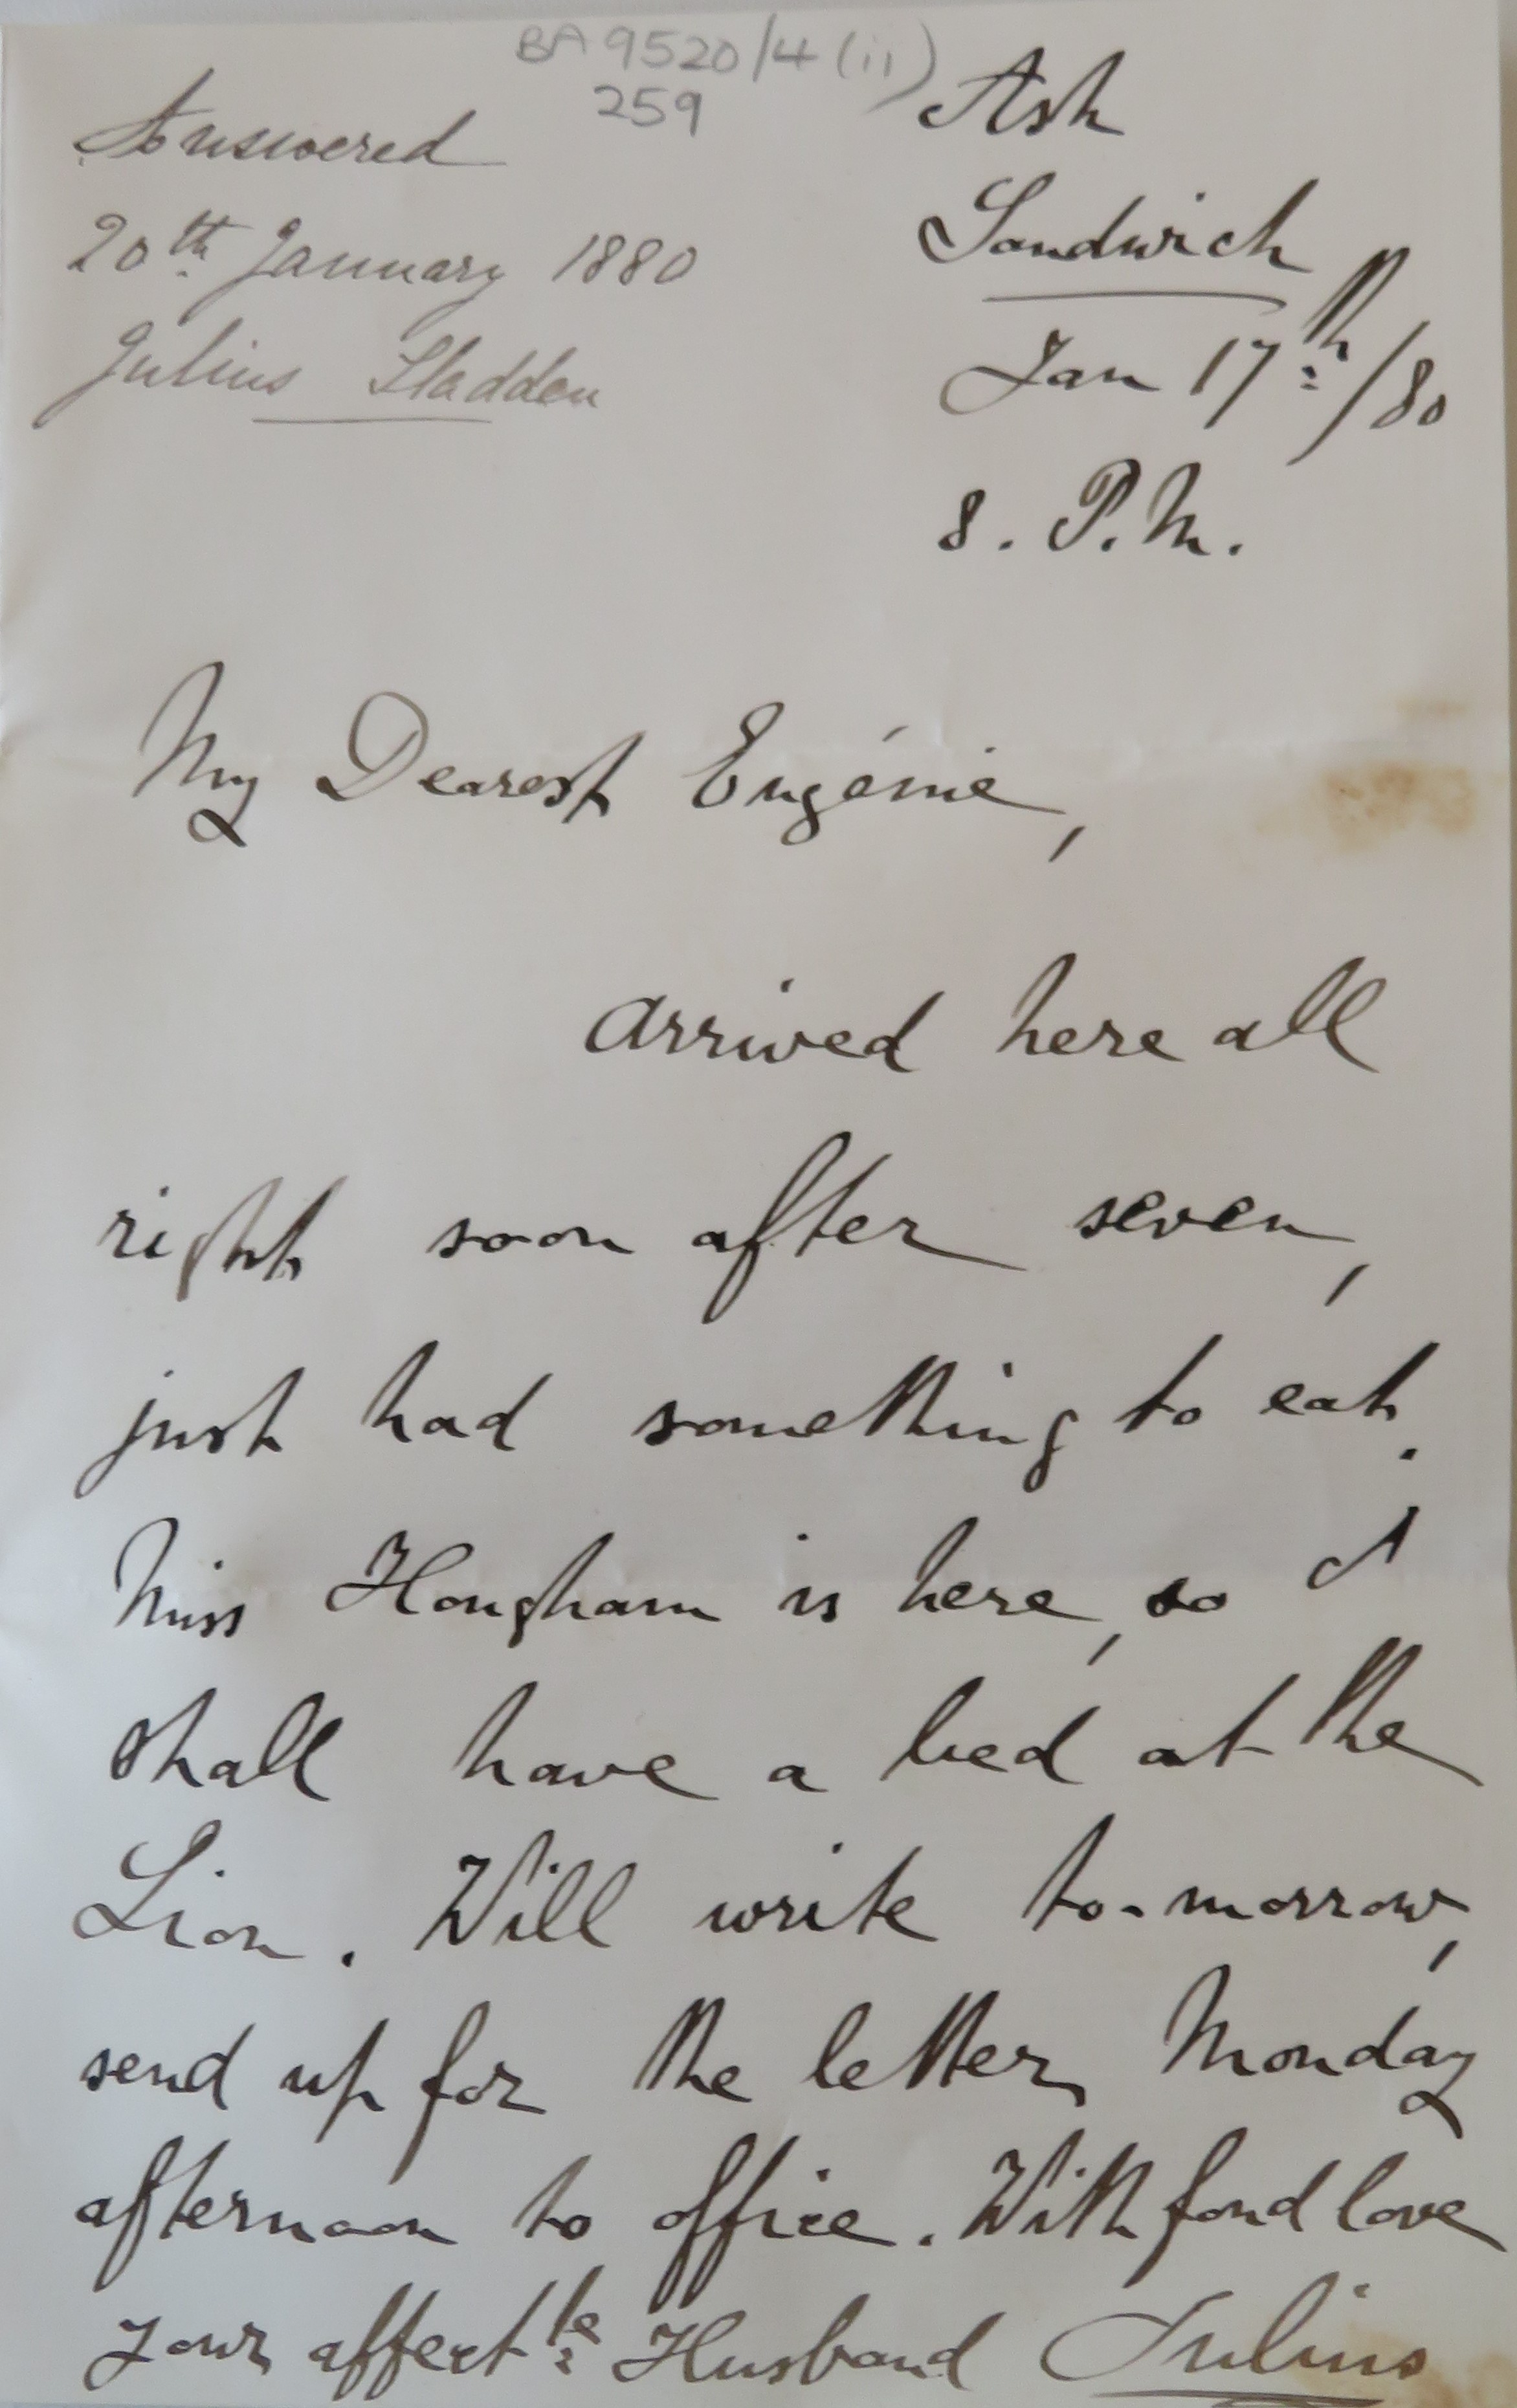 BA 9520/4 (ii)
259
Answered
20th January 1880
Julius Sladden
Ash
Sandwich
Jan 17th/80
8. P.M.
My Dearest Eugénie,
Arrived here all
right soon after seven,
just had something to eat.
Miss Hougham is here, so I
shall have a bed at the
Lion. Will write to-morrow,
send up for the letter, Monday
afternoon to office. With fond love
Your affectte Husband Julius